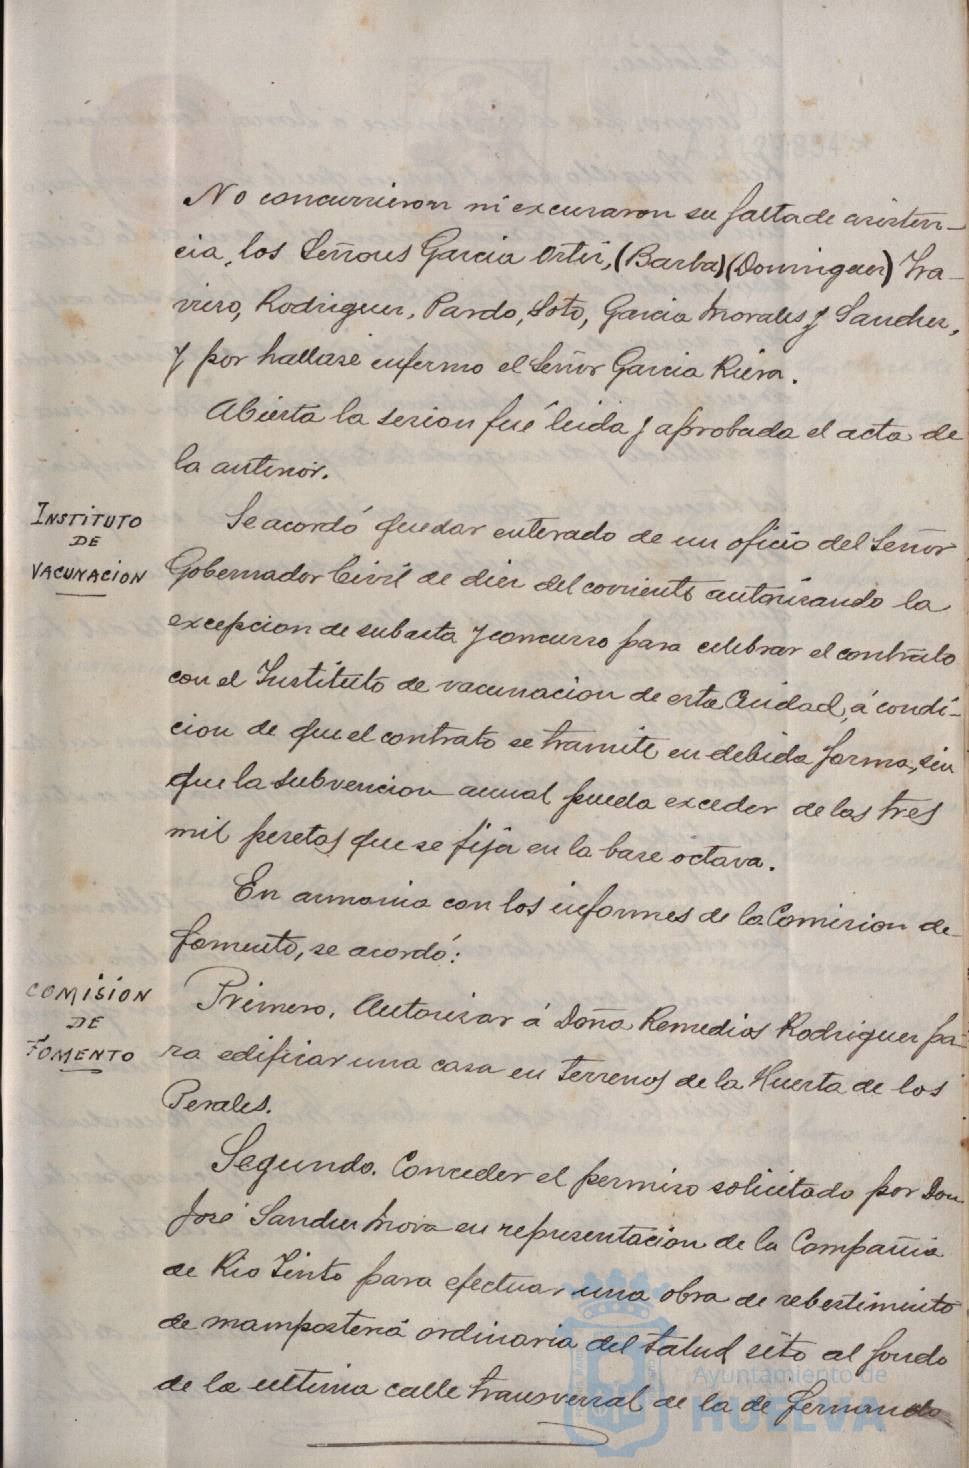 No concurrieron ni excusaron su falta de asisten-
cia, los Señores Garcia Ortiz, (Barba) (Dominguez) Tra-
vieso, Rodriguez, Pardo, Soto, Garcia Morales y Sanchez,
y por hallase enfermo el Señor Garcia Riera.
Abierta la sesion fué leida y aprobada el acta de
la anterior.
INSTITUTO
DE
VACUNACION
Se acordó quedar enterado de un oficio del Señor
Gobernador Civil de diez del corriente autorizando la
excepcion de subasta y concurso para celebrar el contrato
con el Instituto de vacunacion de esta Ciudad, á condi-
cion de que el contrato se tramite en debida forma, sin
que la subvencion anual pueda exceder de las tres
mil pesetas que se fija en la base octava.
En armonia con los informes de la Comision de
fomento, se acordó:
COMISION
DE
FOMENTO
Primero. Autorizar á Doña Remedios Rodriguez pa-
ra edificar una casa en terrenos de la Huerta de los
Perales.
Segundo. Conceder el permiso solicitado por Don
José Sanchez Mora en representacion de la Compañia
de Rio Tinto para efectuar una obra de rebestimiento
de mamposteria ordinaria del talud sito al fondo
de la ultima calle transversal de la de fernando
Ayuntamiento de
HUELVA